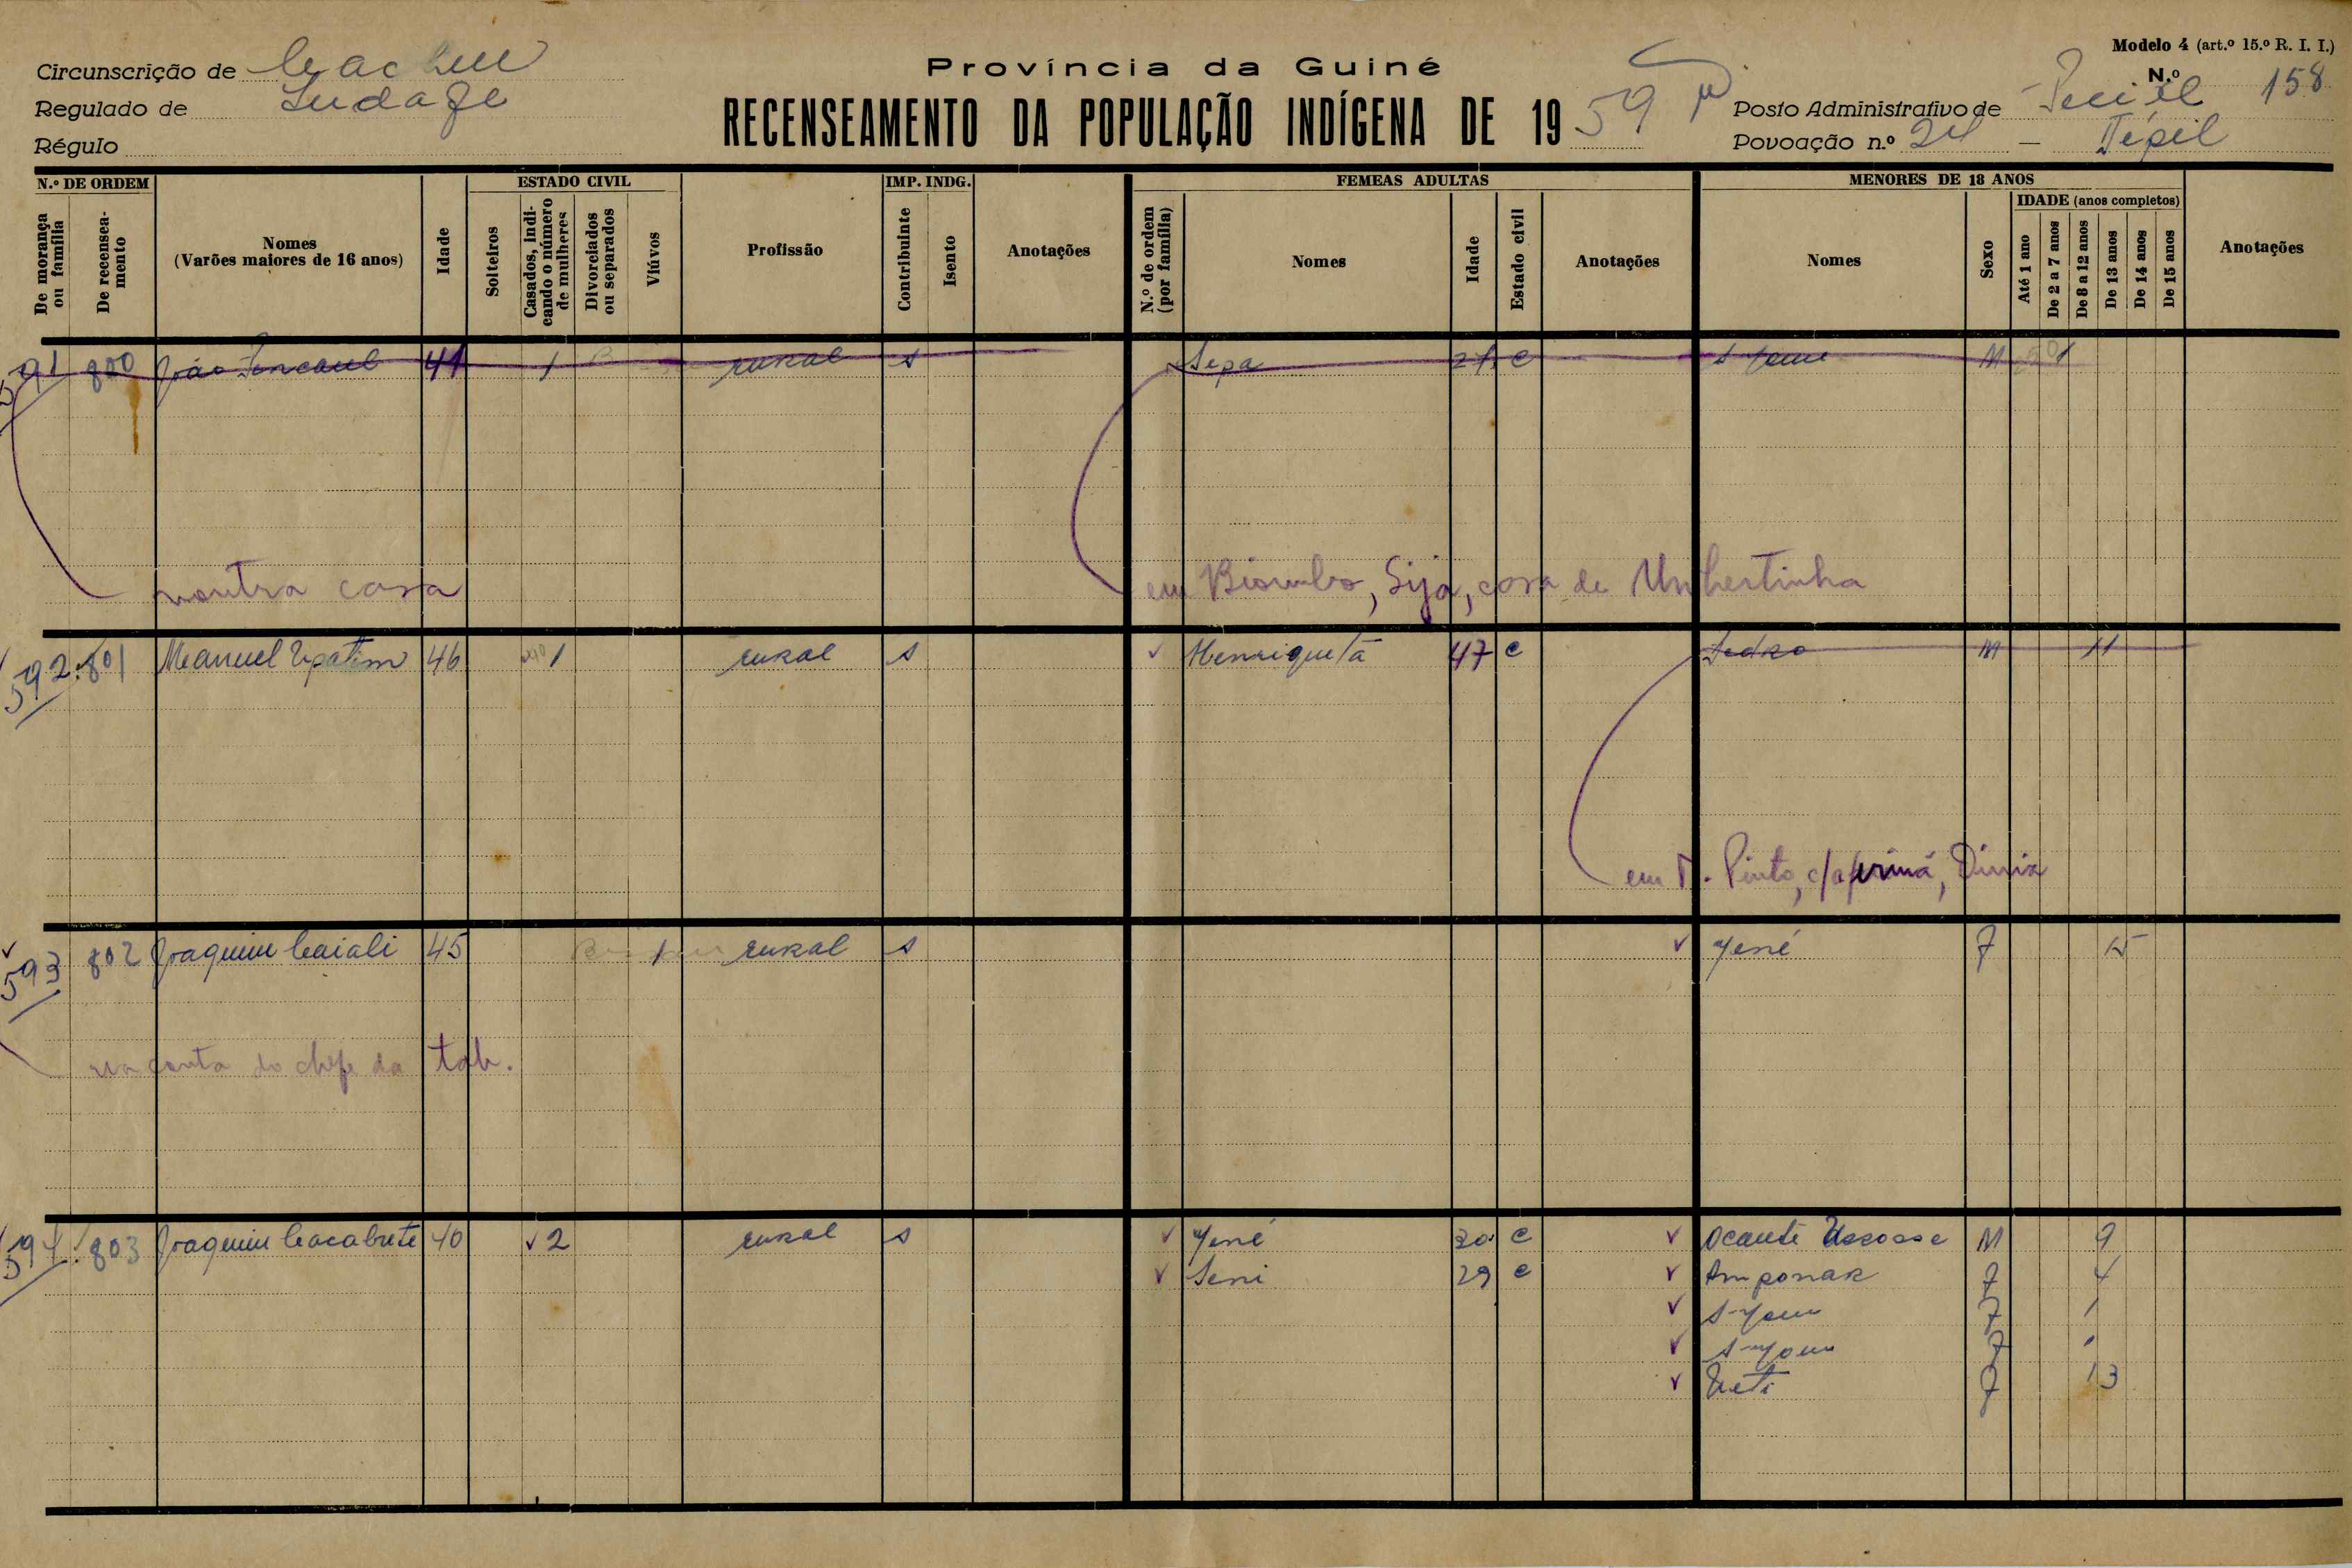 Modelo 4 (art.º 15.º R. I. I.)
Circunscrição de Cacheu
Província da Guiné
N.º 158
Regulado de
RECENSEAMENTO DA POPULAÇÃO INDÍGENA DE 1959
Posto Administrativo de
Régulo
Povoação n.º 24 — Tépil
N.º DE ORDEM
ESTADO CIVIL
IMP. INDG.
FEMEAS ADULTAS
MENORES DE 18 ANOS
De morança ou família
De recenseamento
Nomes (Varões maiores de 16 anos)
Idade
Solteiros
Casados, indicando o número de mulheres
Divorciados ou separados
Viúvos
Profissão
Contribuinte
Isento
Anotações
N.º de ordem (por família)
Nomes
Idade
Estado civil
Anotações
Nomes
Sexo
IDADE (anos completos)
Até 1 ano
De 2 a 7 anos
De 8 a 12 anos
De 13 anos
De 14 anos
De 15 anos
Anotações
591 800 João 41 1 rural s Sepa 27 c M 1
noutra casa
em Biombo, Sija, casa de Unhertinha
592 801 Manuel 46 1 rural s Henriqueta 47 c Pedro M 11
em T. Pinto, c/a prima, Diniz
593 802 Joaquim Caiali 45 1 rural s Yené F 15
na conta do chefe da tab.
594 803 Joaquim Cacabrete 40 2 rural s Yené 30 c Ocante M 9
Seni 29 c Amponar F 4
F 1
F
F 13